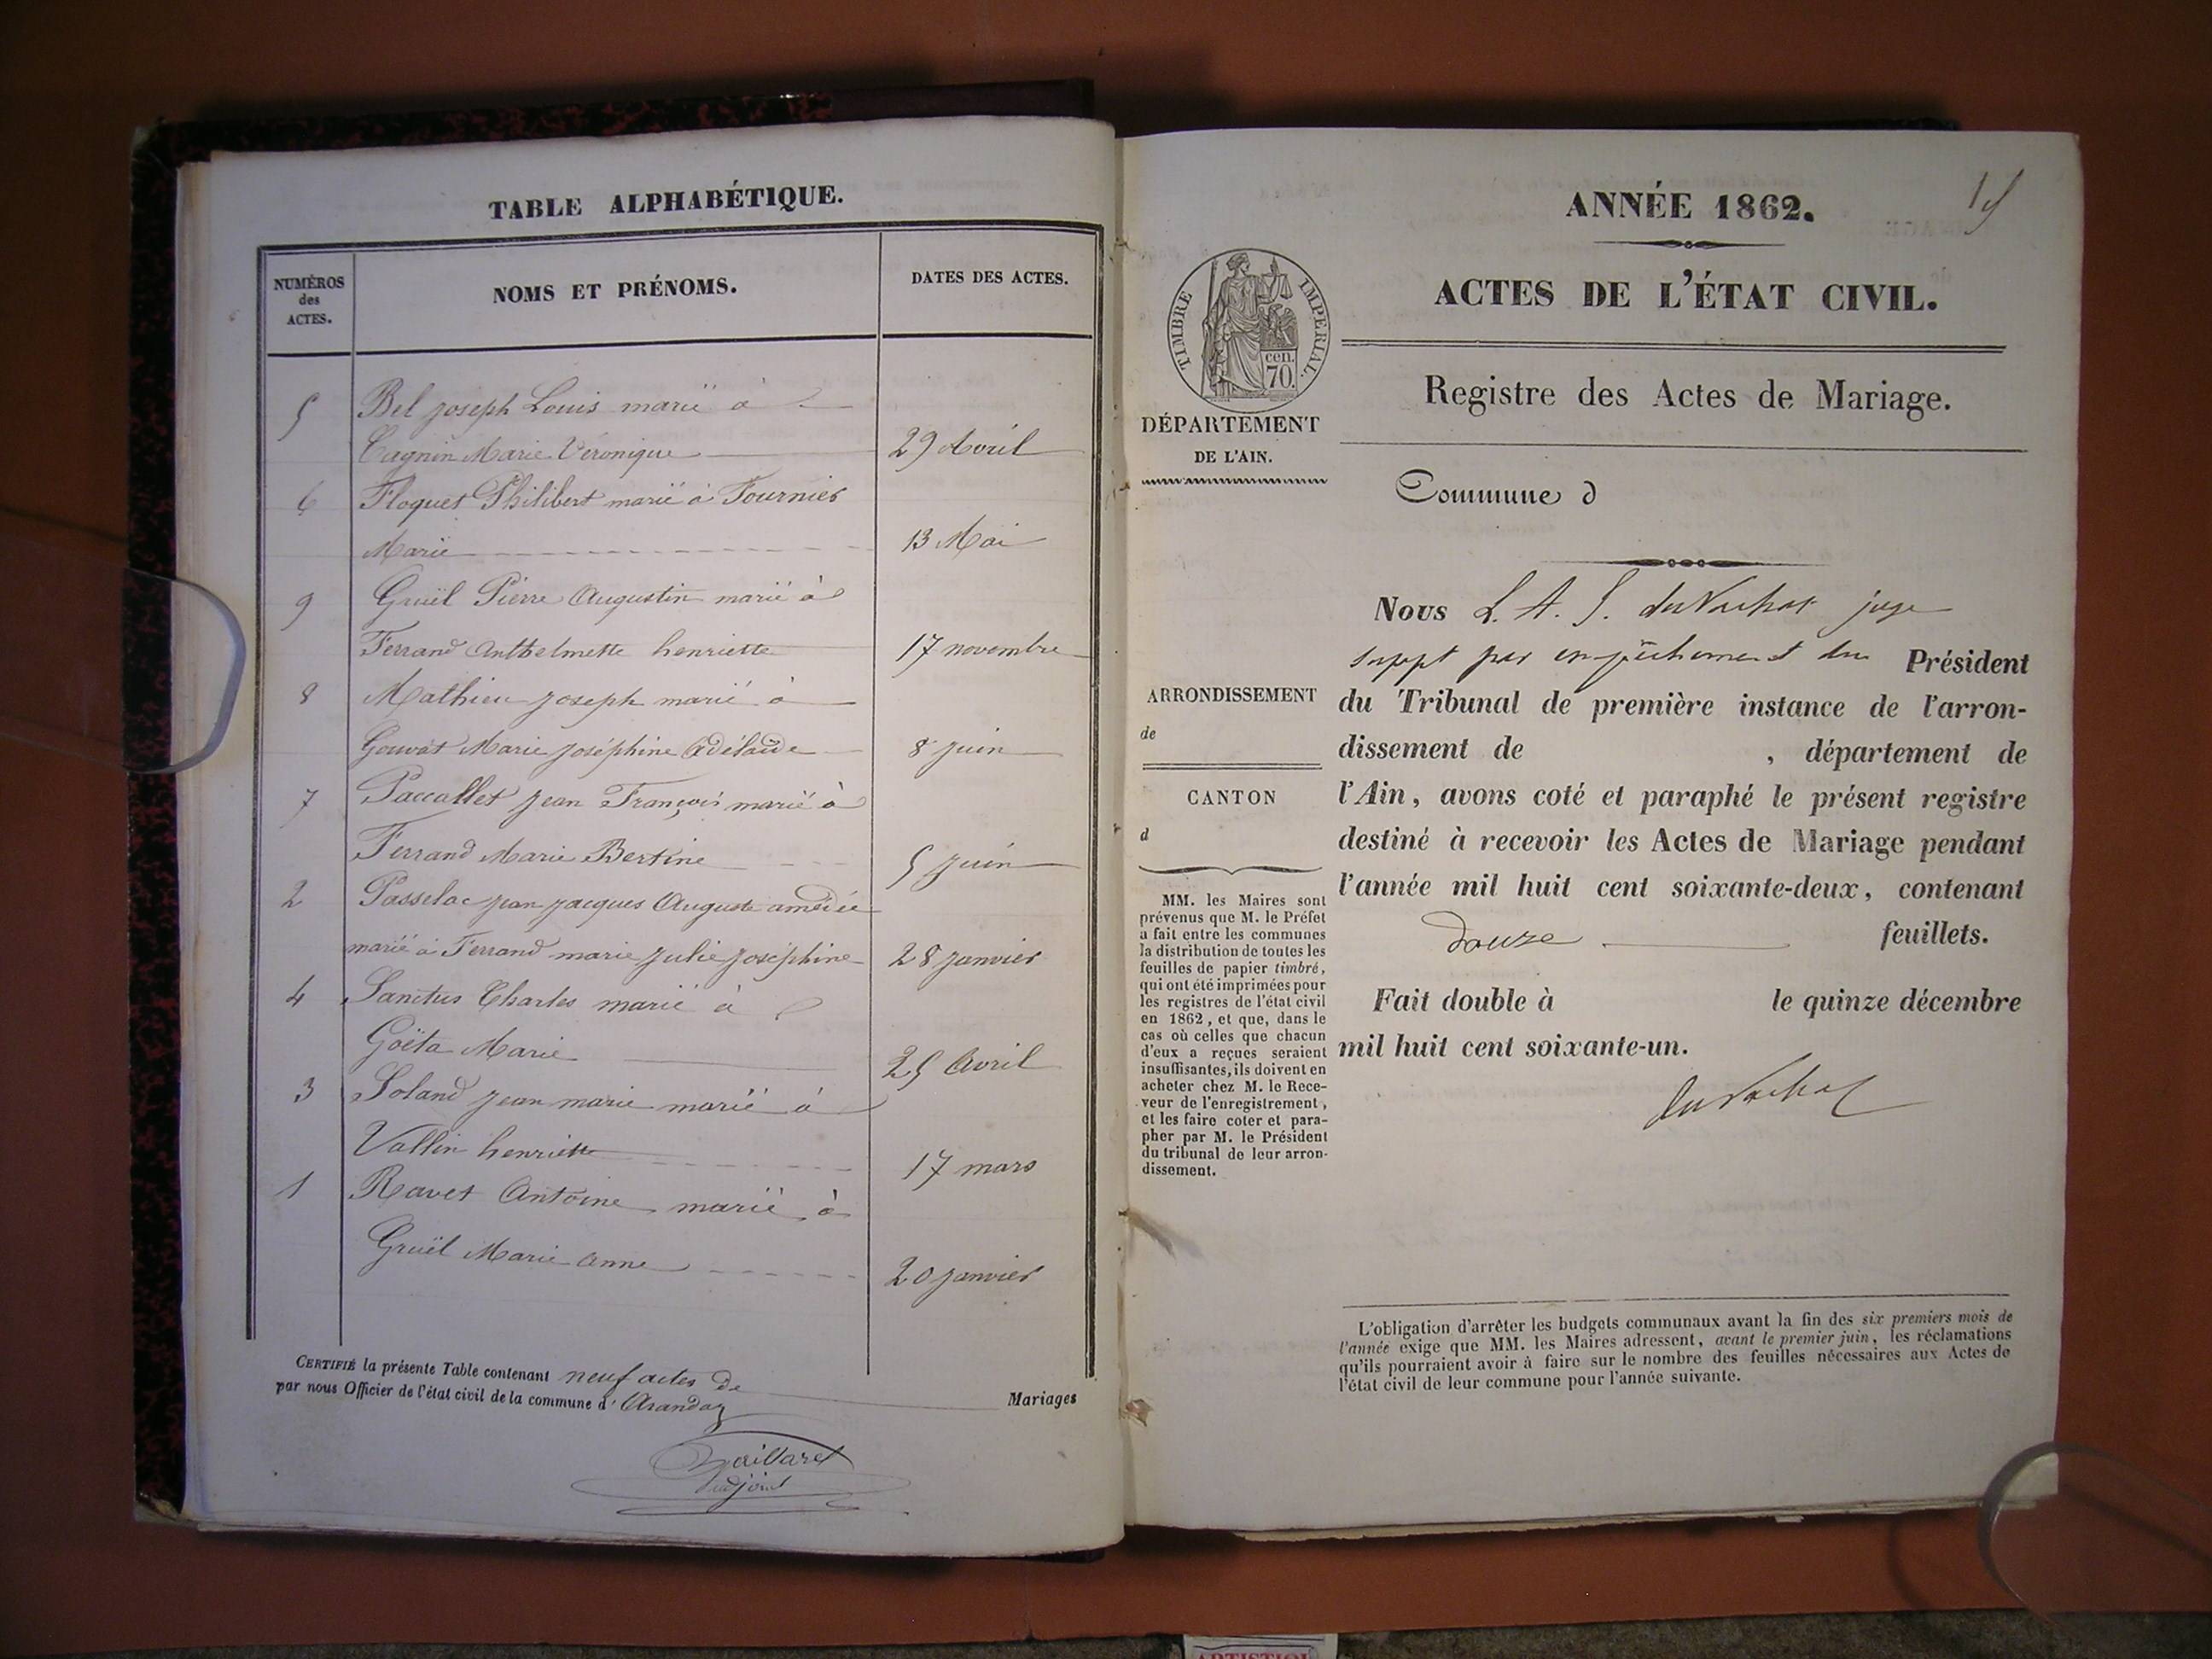 TABLE ALPHABÉTIQUE.
NUMÉROS
des
ACTES.
NOMS ET PRÉNOMS.
DATES DES ACTES.
5 Bel joseph Louis marié à
Cagnin Marie Véronique 29 Avril
6 Floquet Philibert marié à Fournier
Marie 13 Mai
9 Gruël Pierre Augustin marié à
Ferrand Anthelmette henriette 17 novembre
8 Mathieu joseph marié à
Gouvat Marie joséphine Adélaïde 8 juin
7 Paccallet jean François marié à
Ferrand Marie Bertine 5 juin
2 Passelac jean jacques Auguste amédée
marié à Ferrand marie julie joséphine 28 janvier
4 Sanctus Charles marié à
Goëta Marie 25 Avril
3 Soland jean marie marié à
Vallin henriette 17 mars
1 Ravet Antoine marié à
Gruël Marie Anne 20 janvier
CERTIFIÉ la présente Table contenant neuf actes de
Mariages
par nous Officier de l'état civil de la commune d' Arandas
adjoint
15
ANNÉE 1862.
ACTES DE L'ÉTAT CIVIL.
TIMBRE IMPERIAL.
cen.
70.
DÉPARTEMENT
DE L'AIN.
Registre des Actes de Mariage.
Commune d
ARRONDISSEMENT
de
CANTON
d
MM. les Maires sont
prévenus que M. le Préfet
a fait entre les communes
la distribution de toutes les
feuilles de papier timbré,
qui ont été imprimées pour
les registres de l'état civil
en 1862, et que, dans le
cas où celles que chacun
d'eux a reçues seraient
insuffisantes, ils doivent en
acheter chez M. le Rece-
veur de l'enregistrement,
et les faire coter et para-
pher par M. le Président
du tribunal de leur arron-
dissement.
Nous L. A. juge
suppt par empêchement du Président
du Tribunal de première instance de l'arron-
dissement de , département de
l'Ain, avons coté et paraphé le présent registre
destiné à recevoir les Actes de Mariage pendant
l'année mil huit cent soixante-deux, contenant
douze feuillets.
Fait double à le quinze décembre
mil huit cent soixante-un.
L'obligation d'arrêter les budgets communaux avant la fin des six premiers mois de
l'année exige que MM. les Maires adressent, avant le premier juin, les réclamations
qu'ils pourraient avoir à faire sur le nombre des feuilles nécessaires aux Actes de
l'état civil de leur commune pour l'année suivante.